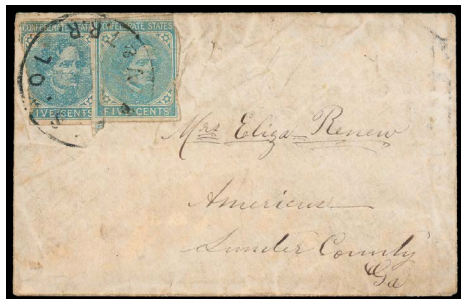 CONFEDERATE STATES CONFEDERATE STATES
FIVE CENTS FIVE CENTS
Mrs Eliza Renew
Americus
Sumter County
Ga